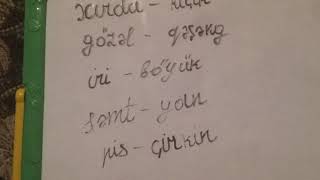 xırda - kiçik
gözəl - qəşəng
iri - böyük
səmt - yan
pis - çirkin